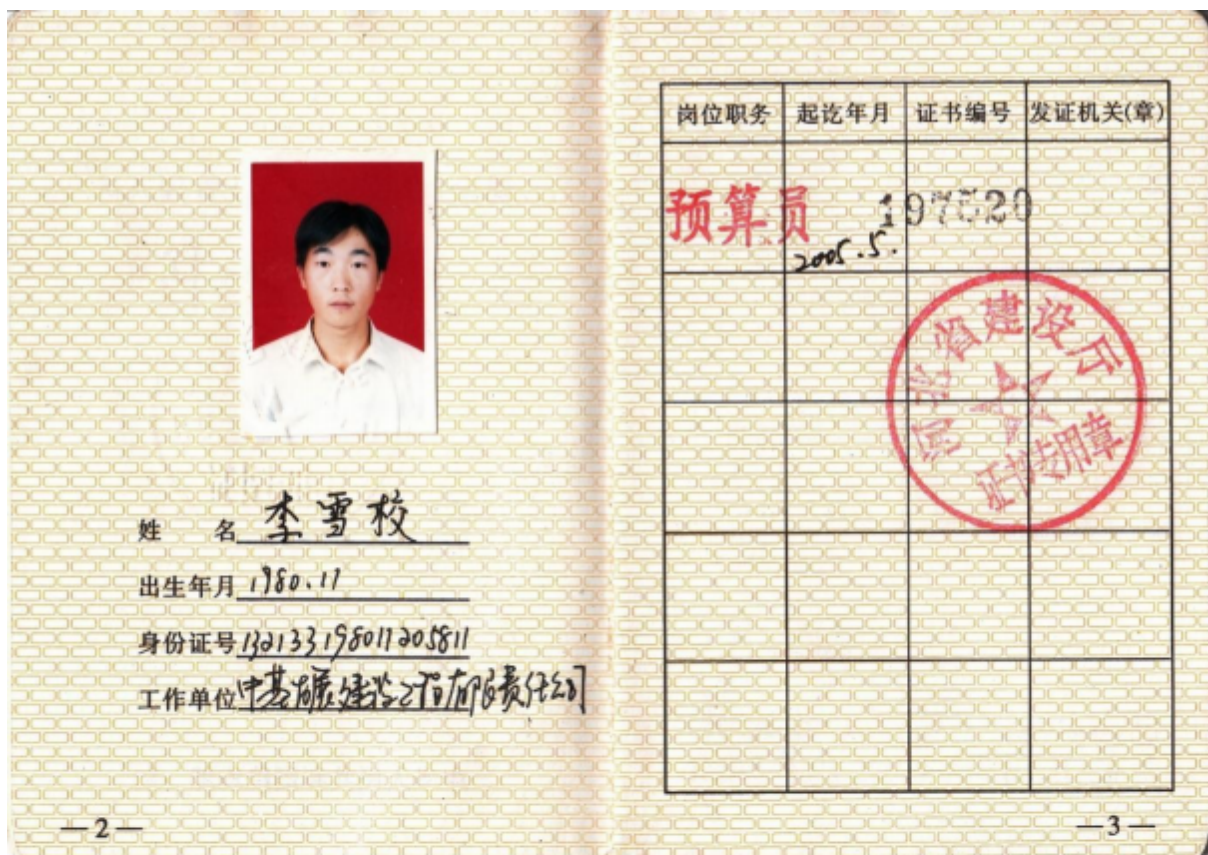 姓 名 李雪校
出生年月 1980.11
身份证号 132133198011205811
工作单位 中基发展建设工程有限责任公司
—2—
岗位职务 起讫年月 证书编号 发证机关(章)
预算员 2005.5. 197520
河北省建设厅
证书专用章
—3—